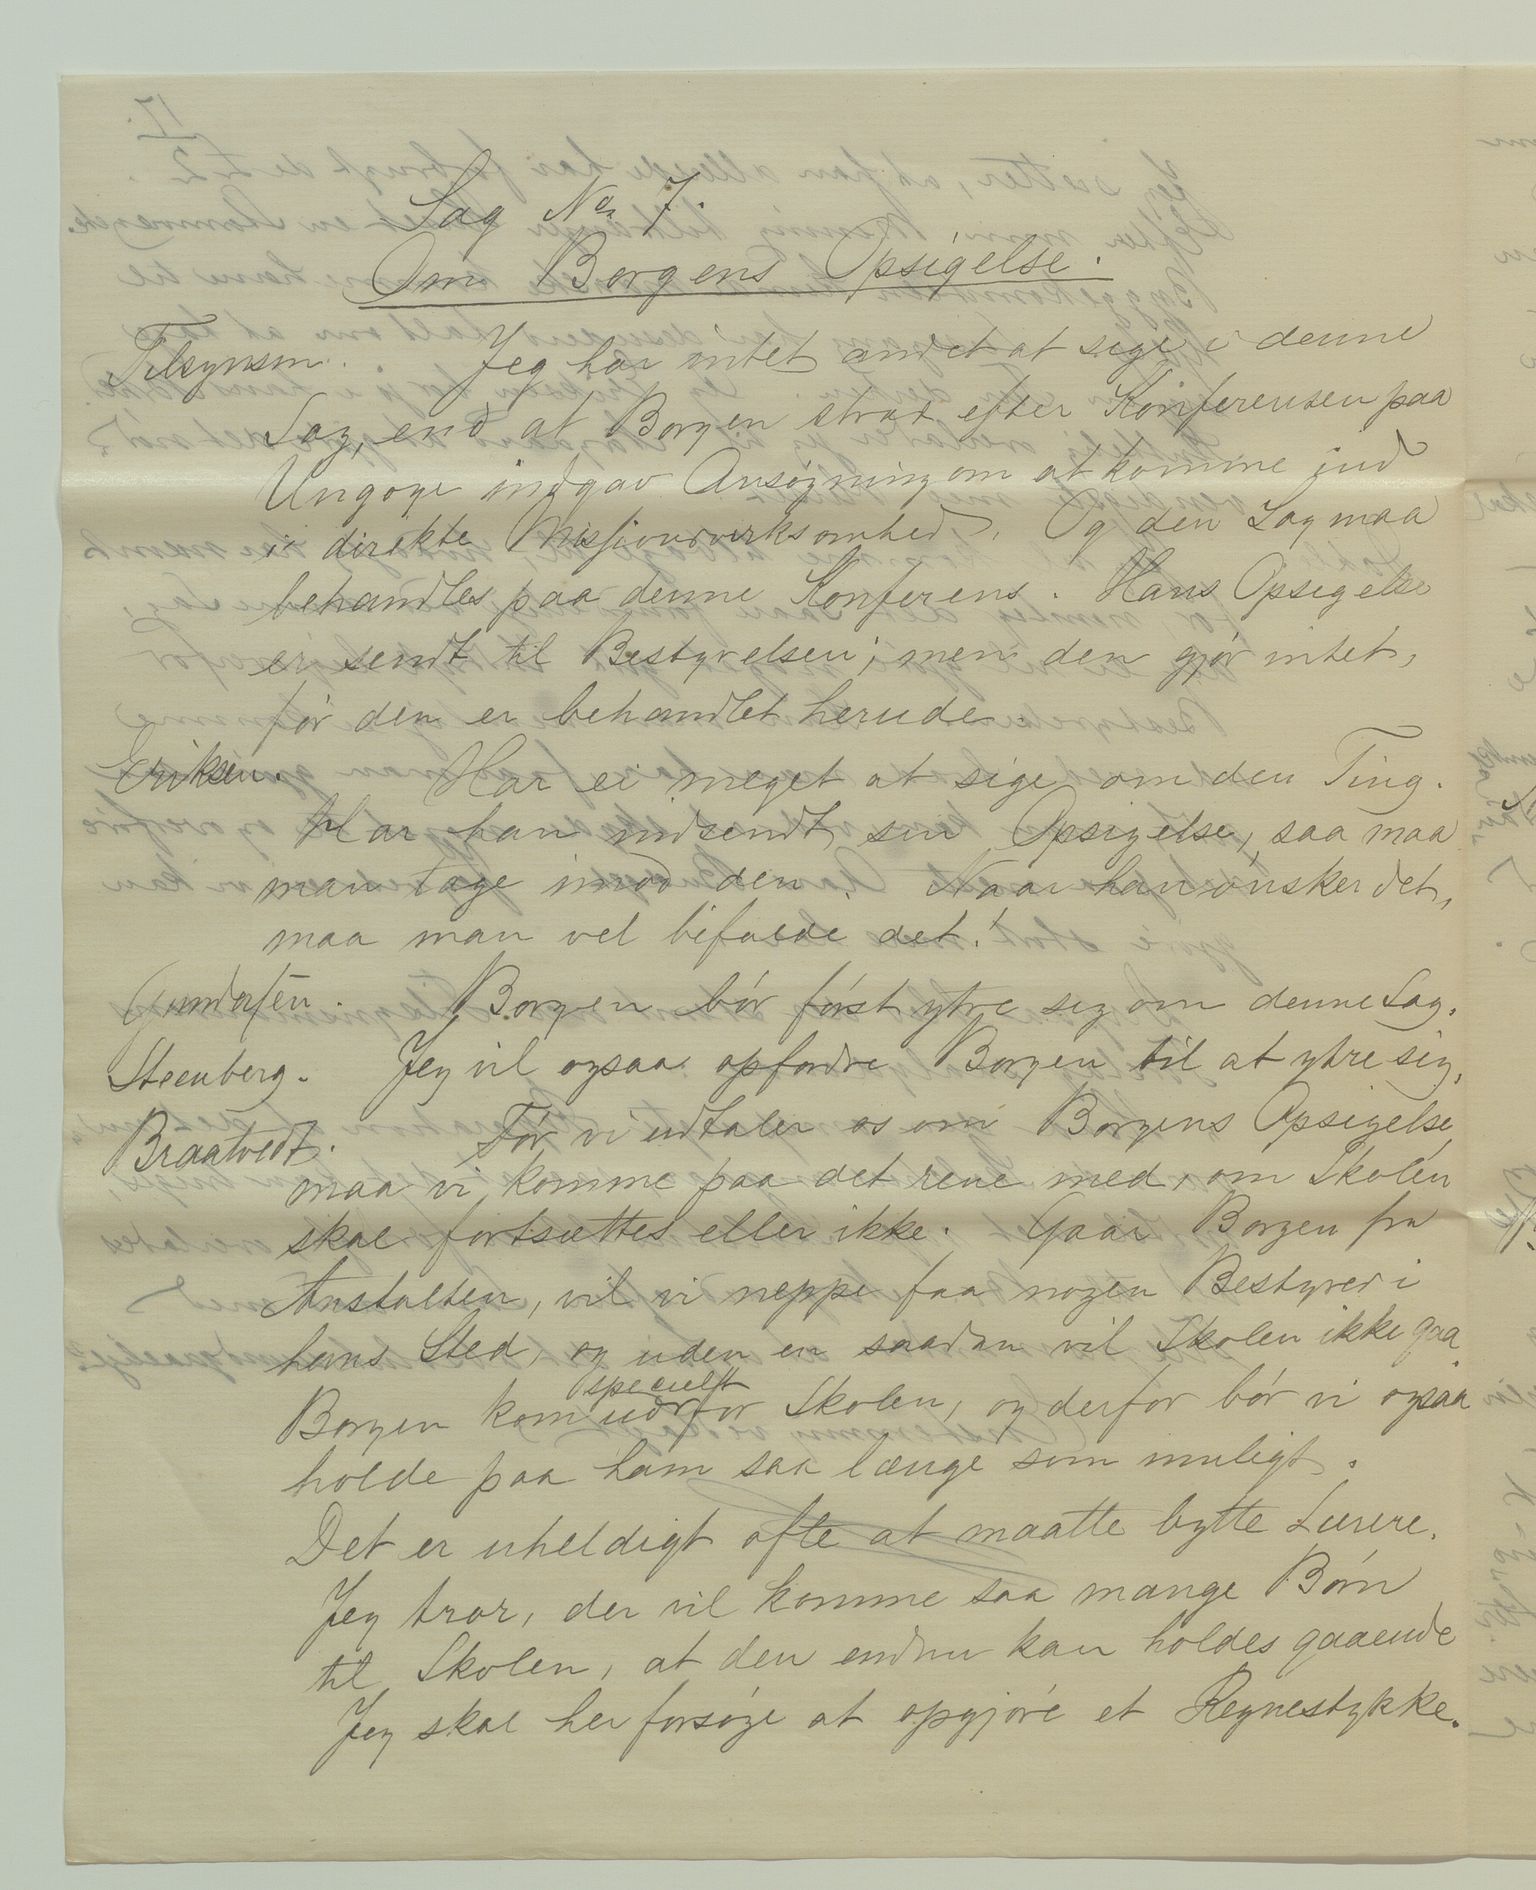 Sag No 7.
Om Borgens Opsigelse.
Tilsynsm. Jeg har intet andet at sige i denne
Sag, end at Borgen strax efter Konferensen paa
Ungoye indgav Ansøgning om at komme ind
i direkte Missionsvirksomhed. Og den Sag maa
behandles paa denne Konferens. Hans Opsigelse
er sendt til Bestyrelsen; men den gjør intet,
før den er behandlet herude.
Eriksen. Har ei meget at sige om den Ting.
Har han indsendt sin Opsigelse, saa maa
man tage imod den. Naar han ønsker det,
maa man vel bifalde det.
Gundersen. Borgen bør først ytre sig om denne Sag.
Steenberg. Jeg vil ogsaa opfordre Borgen til at ytre sig.
Braatvedt. Før vi udtaler os om Borgens Opsigelse
maa vi komme paa det rene med, om Skolen
skal fortsættes eller ikke. Gaar Borgen fra
Anstalten, vil vi neppe faa nogen Bestyrer i
hans Sted, og uden en saadan vil Skolen ikke gaa
Borgen kom specielt ud for Skolen, og derfor bør vi ogsaa
holde paa ham saa længe som muligt.
Det er uheldigt ofte at maatte bytte Lærere.
Jeg tror, der vil komme saa mange Børn
til Skolen, at den endnu kan holdes gaaende
Jeg skal her forsøge at opgjøre et Regnestykke.